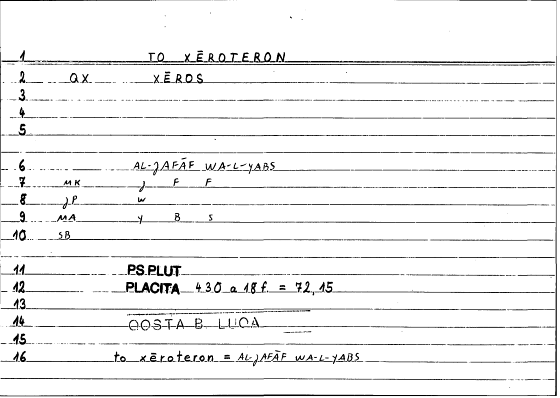 1 TO XĒROTERON
2 QX XĒROS
3
4
5
6 AL-JAFĀF WA-L-YABS
7 MK J F F
8 JP W
9 MA Y B S
10 SB
11 PS.PLUT
12 PLACITA 430 a 18 f. = 72,15
13
14 QOSTA B. LUCA
15
16 to xēroteron = AL-JAFĀF WA-L-YABS